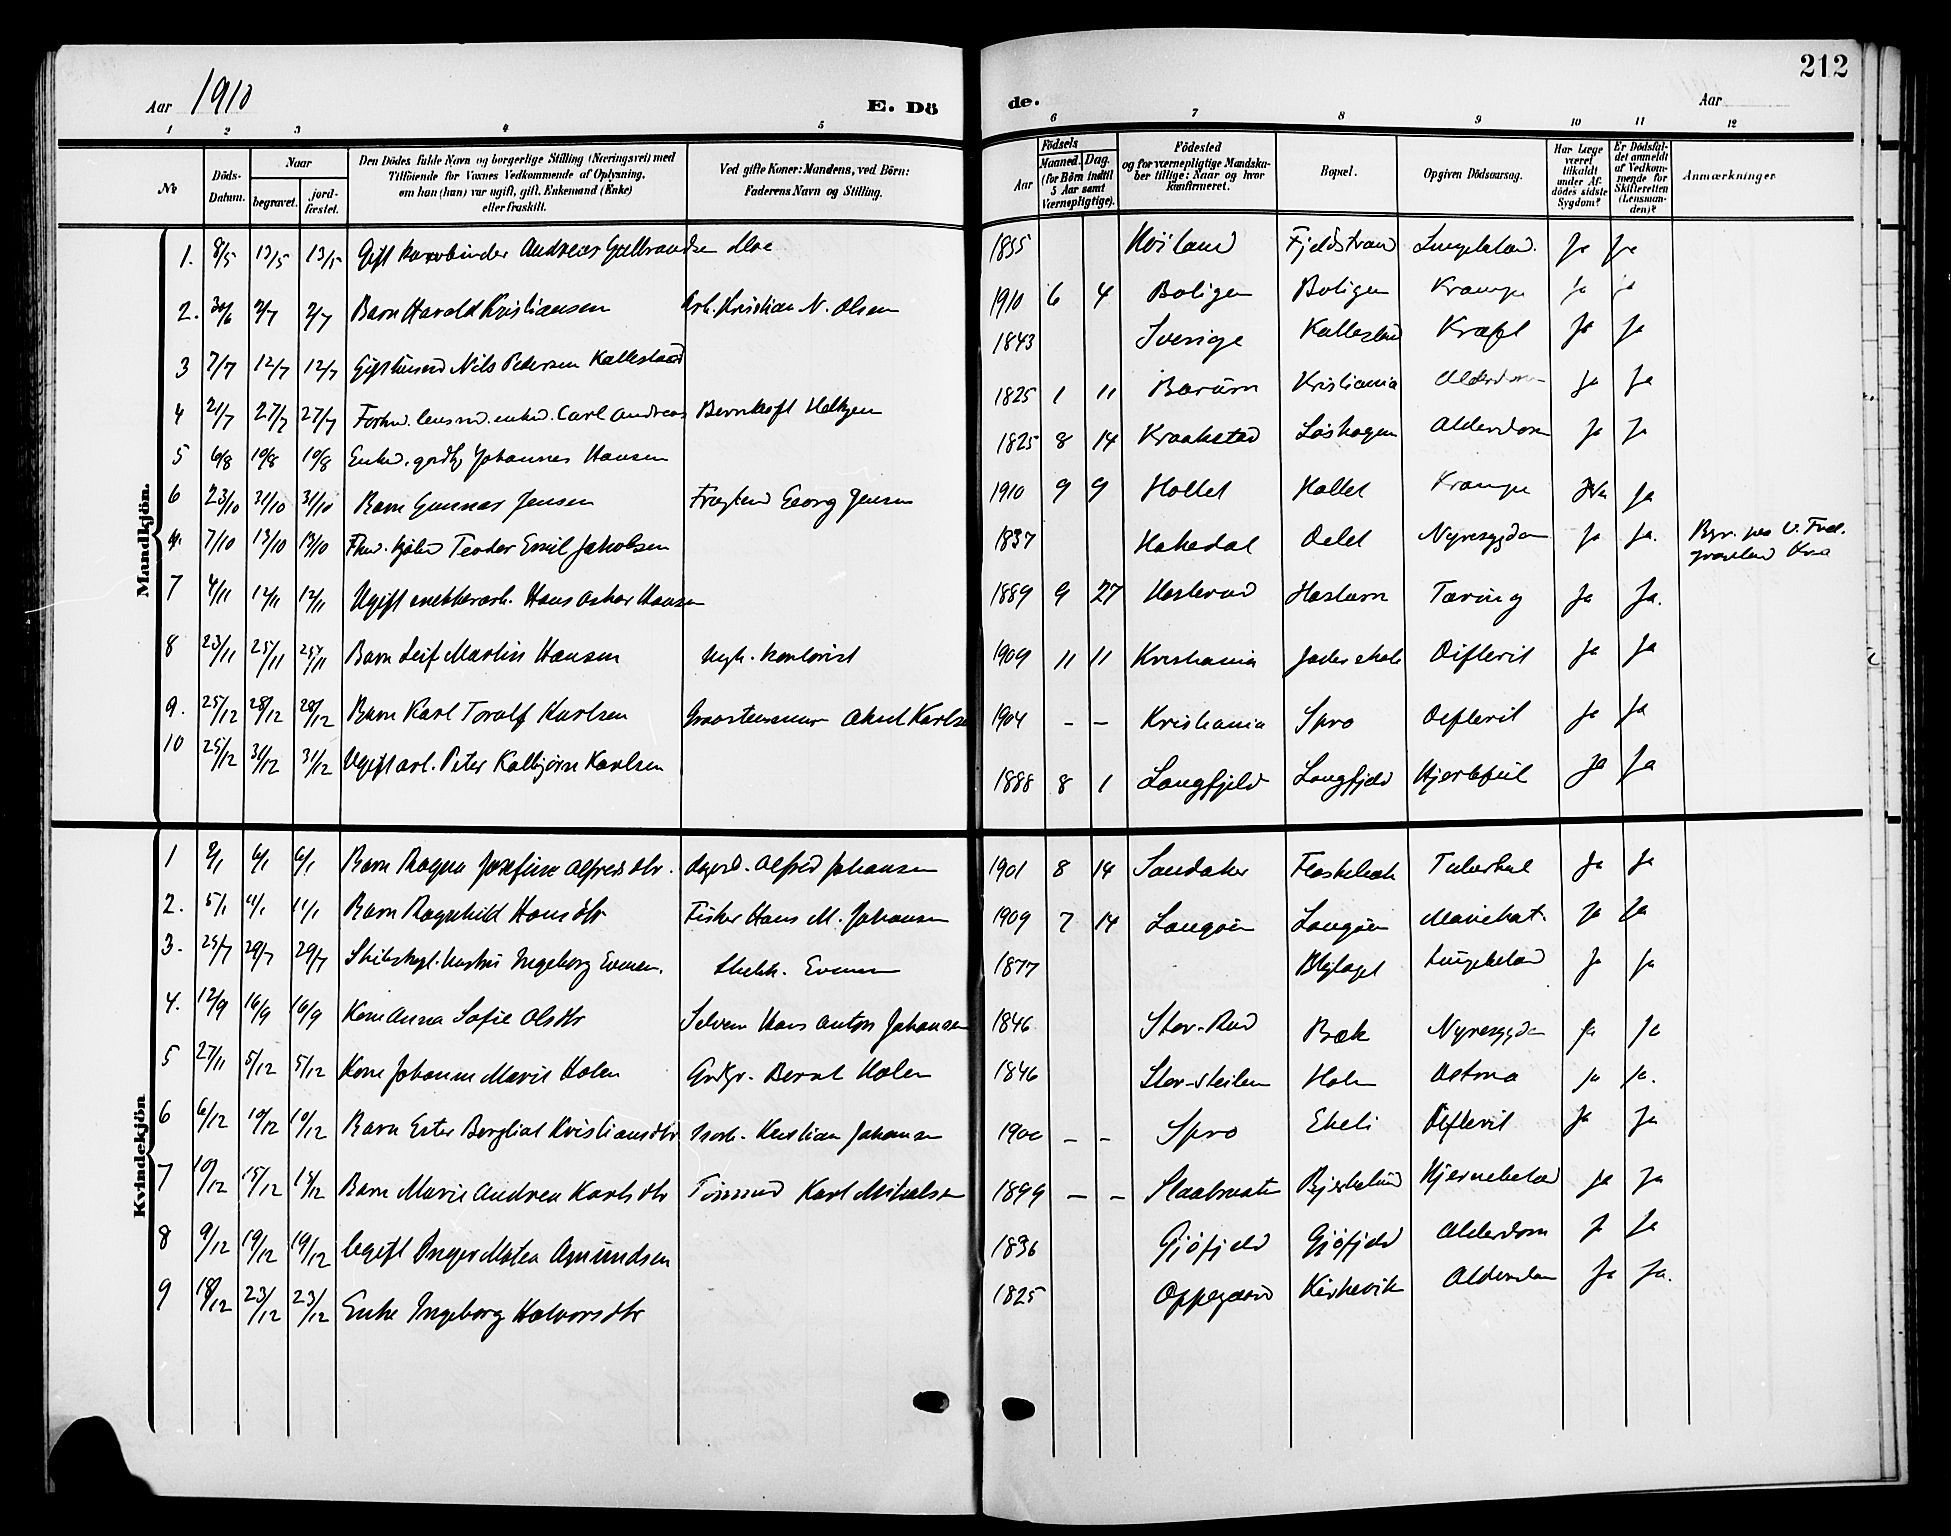 212
Aar 1910
E. Dö
de.
Aar
1 2 3 4 5 6 7 8 9 10 11 12
No
Döds-Datum.
Naar
begravet.
jord-fæstet.
Den Dödes fulde Navn og borgerlige Stilling (Næringsvei) med
Tilföiende for Voxnes Vedkommende af Oplysning,
om han (hun) var ugift, gift, Enkemand (Enke)
eller fraskilt.
Ved gifte Koner: Mandens, ved Börn:
Faderens Navn og Stilling.
Födsels
Aar
Maaned. Dag.
(for Börn indtil
5 Aar samt
Værnepligtige).
Födested
og for værnepligtige Mandska-
ber tillige: Naar og hvor
konfirmeret.
Bopæl.
Opgiven Dödsaarsag.
Har Læge
været
tilkaldt
under Af-
dödes sidste
Sygdom?
Er Dödsfal-
det anmeldt
af Vedkom-
mende for
Skifteretten
(Lensman-
den)?
Anmærkninger
Mandkjön.
1. 8/5 13/5 13/5 Gift Andreas Gulbrandsen Moe 1855 Höiland Fjeldstrand Ja Ja
2. 30/6 2/7 2/7 Barn Harald Kristiansen Arb. Kristian N. Olsen 1910 6 4 Boligen Boligen Krampe Ja Ja
3 7/7 12/7 12/7 Gift husmd Nils Pedersen Kallestad 1843 Sverige Kallestad Kræft Ja Ja
4 21/7 27/7 27/7 Forhv. lensmd. enkem. Carl Andreas Bernhoft Helgesen 1825 1 11 Bærum Kristiania Alderdom Ja Ja
5 6/8 10/8 10/8 Enkem. grdbr Johannes Hansen 1825 8 14 Kraakstad Løshagen Alderdom Ja Ja
6 23/10 31/10 31/10 Barn Gunnar Jensen Georg Jensen 1910 9 9 Hallet Hallet Krampe Ja
7/10 13/10 13/10 Teodor Emil Jakobsen 1837 Hakedal Nyresygdom Ja Ja.
7 4/11 12/11 12/11 Ugift snekkerarb. Hans Oskar Hansen 1889 9 27 Haslerud Haslum Tæring Ja Ja.
8 23/11 25/11 25/11 Barn Leif Martin Hansen Ugh. kontorist 1909 11 11 Kristiania Difterit Ja Ja
9. 25/12 28/12 28/12 Barn Karl Toralf Karlsen Graastensmurer Aksel Karlsen 1904 - - Kristiania Spro Difterit Ja Ja
10 25/12 31/12 31/12 Ugift arb. Peter Kolbjørn Karlsen 1888 8 1 Langfjeld Langfjeld Hjertefeil Ja Ja
Kvindekjön
1 2/1 6/1 6/1 Barn Ragna Josefine Alfredsdtr. Alfred Johansen 1901 8 14 Sandaker Flaskebæk Tuberkul Ja Ja
2. 5/1 11/1 11/1 Barn Ragnhild Hansdtr Fisker Hans M. Johansen 1909 7 14 Langøen Langøen Ja Ja
3. 25/7 29/7 29/7 Ingeborg Evensen. Evensen 1877 Ja Ja
4. 12/9 16/9 16/9 Kone Anna Sofie Olsdtr Selvem Hans Anton Johansen 1846 Stor-Rud Bæk Nyresygdom Ja Ja
5 27/11 5/12 5/12 Kone Johanne Marie Holen Grdbr. Bernt Holen 1846 Stor-steilene Holen Astma Ja Ja.
6 6/12 10/12 10/12 Barn Ester Bergliot Kristiansdtr Kristian Johansen 1900 - - Spro Ekeli Difterit Ja Ja
7 10/12 15/12 15/12 Barn Marie Andrea Karlsdtr Tömmerd Karl Mikalsen 1899 - - Bjerkelund Ja Ja
8 9/12 19/12 19/12 Ugift Inger Matea Amundsen 1836 Gjöfjeld Gjöfjeld Alderdom Ja Ja
9 18/12 23/12 23/12 Enke Ingeborg Halvorsdtr 1825 Oppegaard Kirkevik Alderdom Ja Ja.